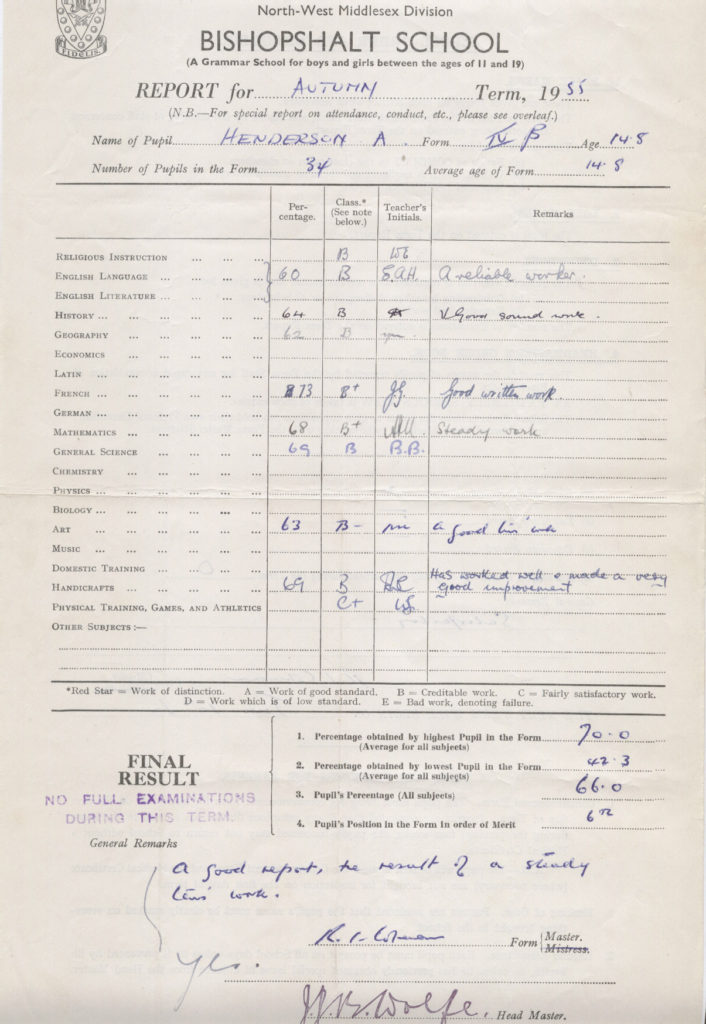 FIDELIS
North-West Middlesex Division
BISHOPSHALT SCHOOL
(A Grammar School for boys and girls between the ages of 11 and 19)
REPORT for AUTUMN Term, 1955
(N.B.—For special report on attendance, conduct, etc., please see overleaf.)
Name of Pupil HENDERSON A. Form IV B Age 14.8
Number of Pupils in the Form 34 Average age of Form 14.8
Per-centage. Class.* (See note below.) Teacher's Initials. Remarks
RELIGIOUS INSTRUCTION ... ... ... B
ENGLISH LANGUAGE ... ... ... 60 B E.A.H. A reliable worker.
ENGLISH LITERATURE ... ... ...
HISTORY ... ... ... ... ... 64 B V Good sound work.
GEOGRAPHY ... ... ... ... 62 B
ECONOMICS ... ... ... ...
LATIN ... ... ... ... ...
FRENCH ... ... ... ... ... 73 B+ J.G. Good written work.
GERMAN ... ... ... ... ...
MATHEMATICS ... ... ... ... 68 B+ Steady work
GENERAL SCIENCE ... ... ... 69 B B.B.
CHEMISTRY ... ... ... ...
PHYSICS ... ... ... ... ...
BIOLOGY ... ... ... ... ...
ART ... ... ... ... ... 63 B- A good term's work
MUSIC ... ... ... ... ...
DOMESTIC TRAINING ... ... ...
HANDICRAFTS ... ... ... ... 69 B Has worked well & made a very good improvement
PHYSICAL TRAINING, GAMES, AND ATHLETICS C+
OTHER SUBJECTS :—
*Red Star = Work of distinction. A = Work of good standard. B = Creditable work. C = Fairly satisfactory work.
D = Work which is of low standard. E = Bad work, denoting failure.
FINAL RESULT
NO FULL EXAMINATIONS
DURING THIS TERM.
1. Percentage obtained by highest Pupil in the Form 70.0
(Average for all subjects)
2. Percentage obtained by lowest Pupil in the Form 42.3
(Average for all subjects)
3. Pupil's Percentage (All subjects) 66.0
4. Pupil's Position in the Form in order of Merit 6th
General Remarks
A good report, the result of a steady
term's work.
Form Master.
Mistress.
Yes.
J.F.B. Wolfe. Head Master.